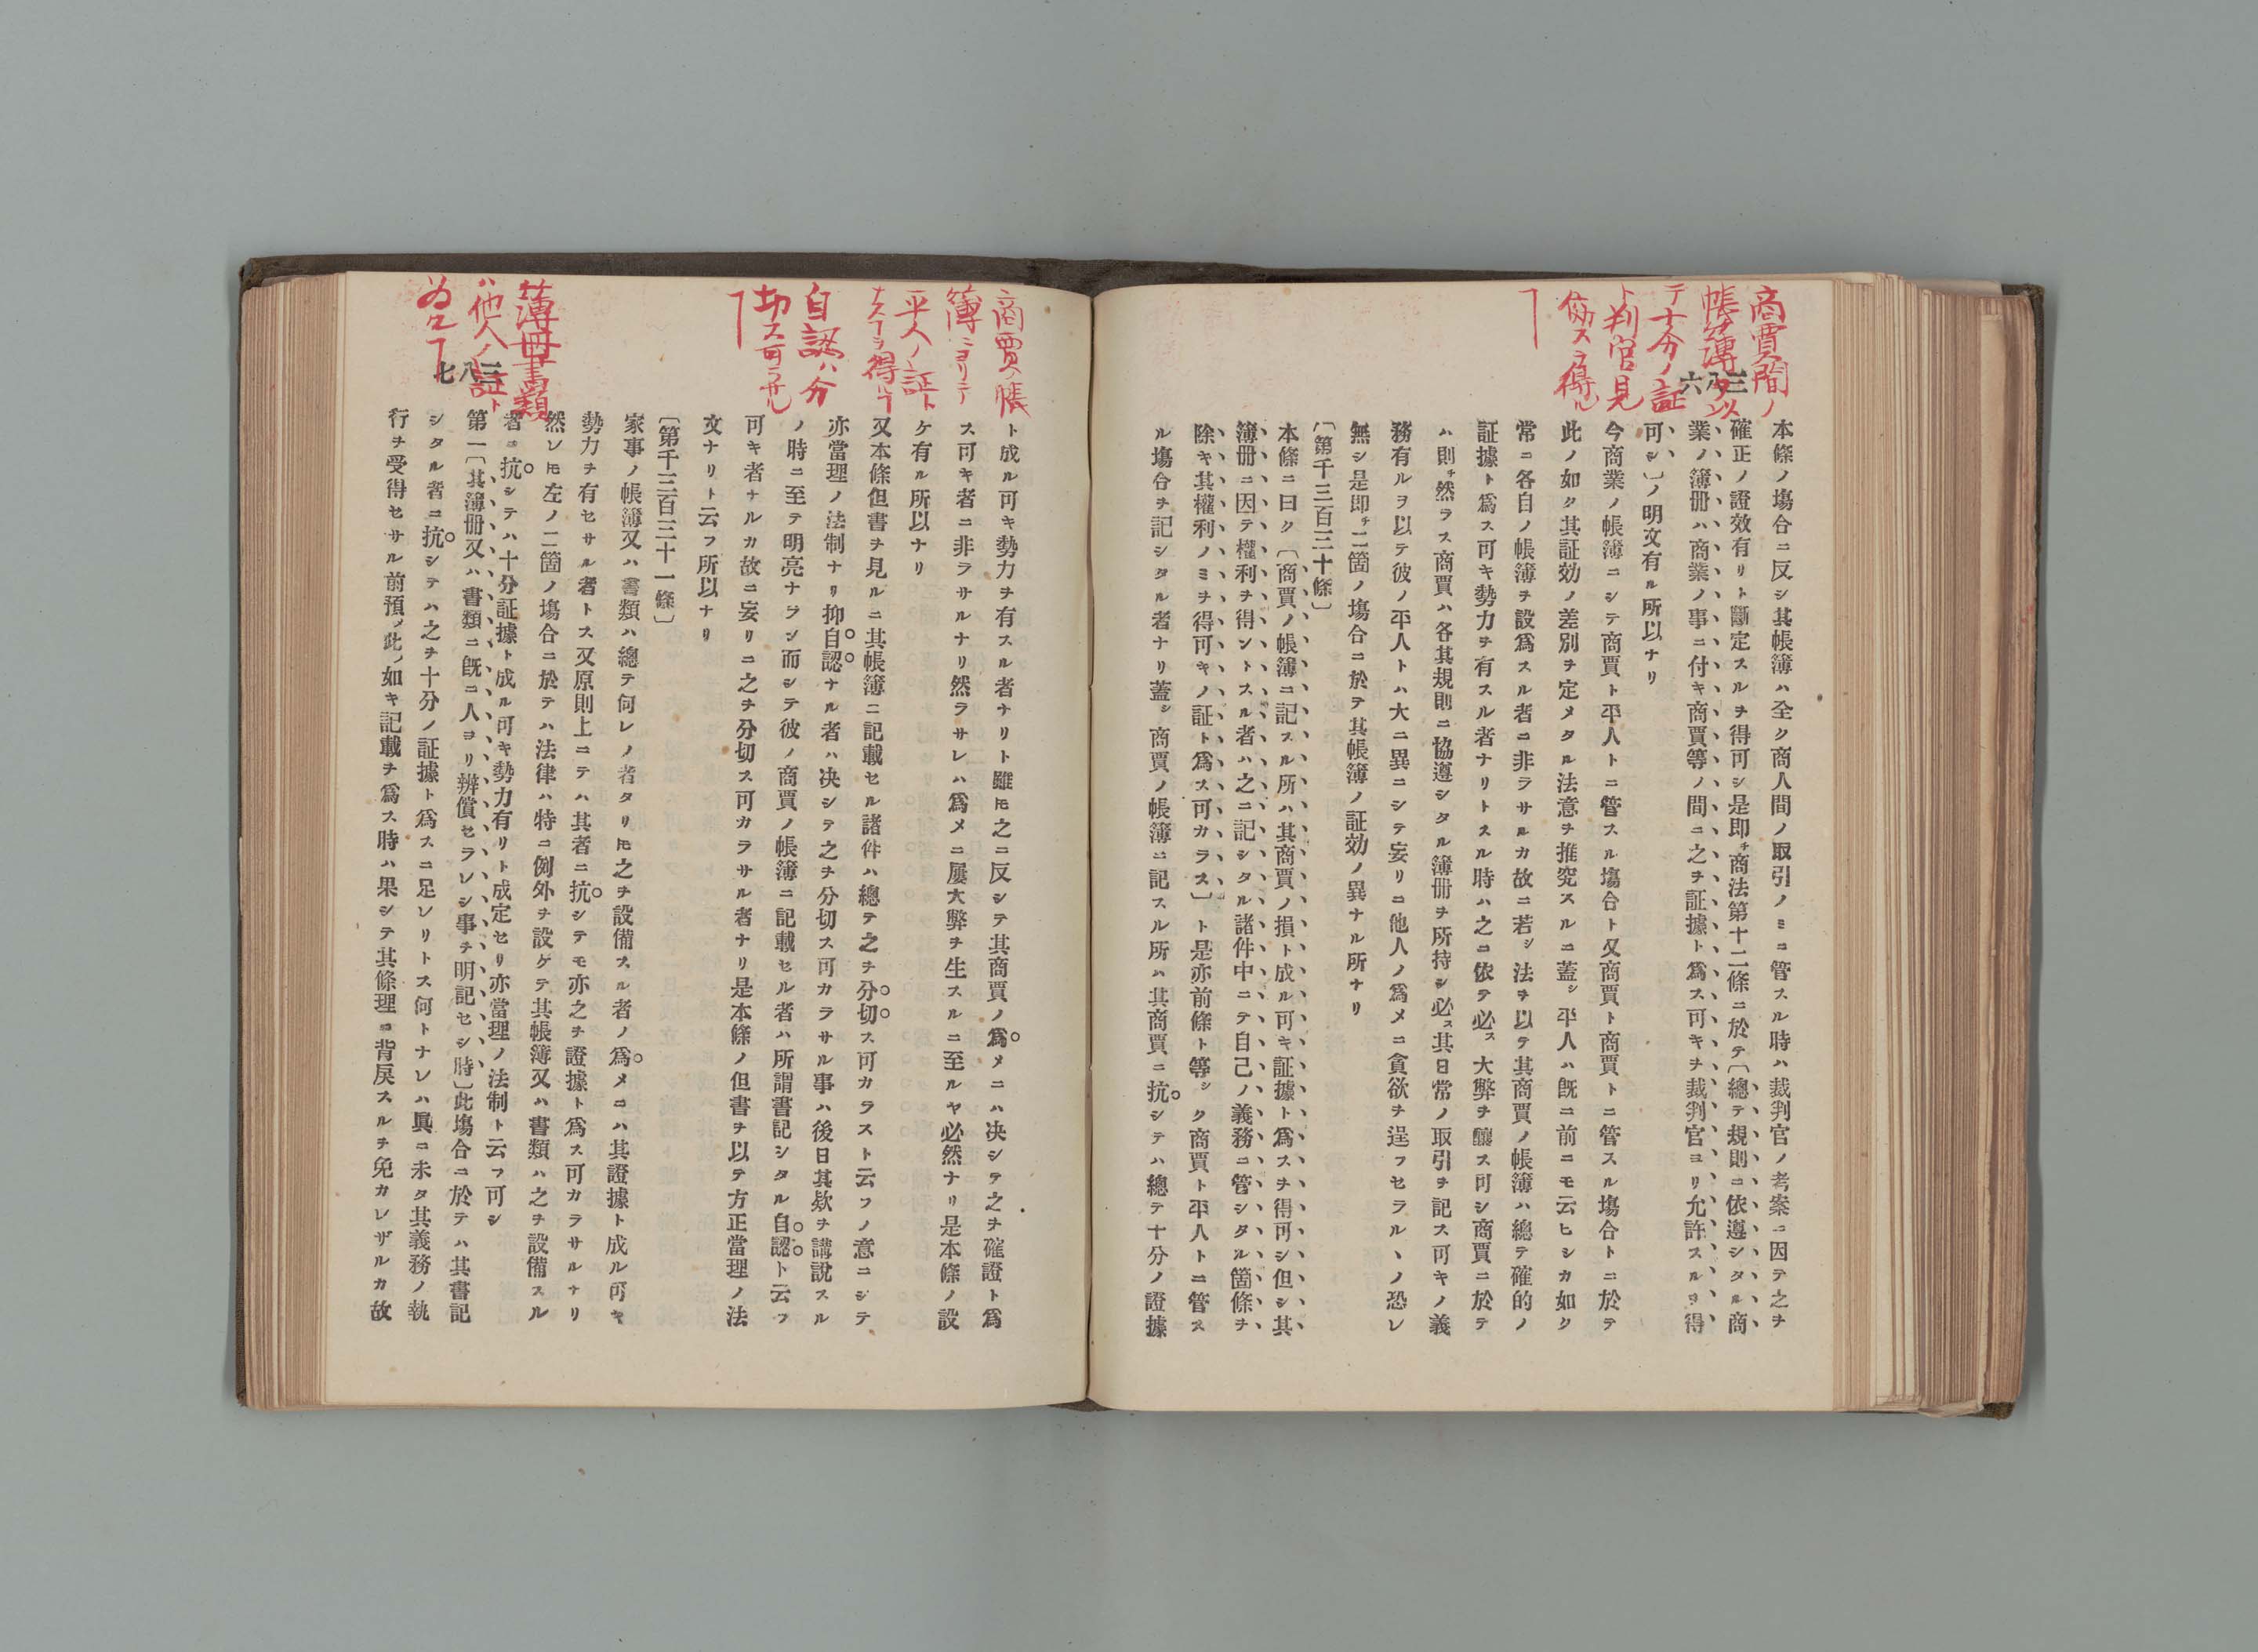 商賈間ノ
帳簿ヲ以
テ十分ノ証
ト判官見
做スヲ得ル
三八六
本條ノ塲合ニ反シ其帳簿ハ全ク商人間ノ取引ノミニ管スル時ハ裁判官ノ考案ニ因テ之ヲ
確正ノ證效有リト斷定スルヲ得可シ是即チ商法第十二條ニ於テ〔總テ規則ニ依遵シタル商
業ノ簿册ハ商業ノ事ニ付キ商賈等ノ間ニ之ヲ証據ト爲ス可キヲ裁判官ヨリ允許スルヿ得
可シ〕ノ明文有ル所以ナリ
今商業ノ帳簿ニシテ商賈ト平人トニ管スル塲合ト又商賈ト商賈トニ管スル塲合トニ於テ
此ノ如ク其証効ノ差別ヲ定メタル法意ヲ推究スルニ蓋シ平人ハ既ニ前ニモ云ヒシカ如ク
常ニ各自ノ帳簿ヲ設爲スル者ニ非ラサルカ故ニ若シ法ヲ以テ其商賈ノ帳簿ハ總テ確的ノ
証據ト爲ス可キ勢力ヲ有スル者ナリトスル時ハ之ニ依テ必ス大弊ヲ釀ス可シ商賈ニ於テ
ハ則チ然ラス商賈ハ各其規則ニ協遵シタル簿册ヲ所持シ必ス其日常ノ取引ヲ記ス可キノ義
務有ルヲ以テ彼ノ平人トハ大ニ異ニシテ妄リニ他人ノ爲メニ貪欲ヲ逞フセラルヽノ恐レ
無シ是即チ二箇ノ塲合ニ於テ其帳簿ノ証効ノ異ナル所ナリ
〔第千三百三十條〕
本條ニ曰ク〔商賈ノ帳簿ニ記スル所ハ其商賈ノ損ト成ル可キ証據ト爲スヲ得可シ但シ其
簿册ニ因テ權利ヲ得ントスル者ハ之ニ記シタル諸件中ニテ自己ノ義務ニ管シタル箇條ヲ
除キ其權利ノミヲ得可キノ証ト爲ス可カラス〕ト是亦前條ト等シク商賈ト平人トニ管ス
ル塲合ヲ記シタル者ナリ蓋シ商賈ノ帳簿ニ記スル所ハ其商賈ニ抗シテハ總テ十分ノ證據
商賈ノ帳
簿ニヨリテ
平人ノ証ト
ナスヲ得
自認ハ分
切ス可ラサル
ト成ル可キ勢力ヲ有スル者ナリト雖𪜈之ニ反シテ其商賈ノ爲メニハ决シテ之ヲ確證ト爲
ス可キ者ニ非ラサルナリ然ラサレハ爲メニ屢大弊ヲ生スルニ至ルヤ必然ナリ是本條ノ設
ケ有ル所以ナリ
又本條但書ヲ見ルニ其帳簿ニ記載セル諸件ハ總テ之ヲ分切ス可カラスト云フノ意ニシテ
亦當理ノ法制ナリ抑自認ナル者ハ决シテ之ヲ分切ス可カラサル事ハ後日其欵ヲ講說スル
ノ時ニ至テ明亮ナラン而シテ彼ノ商賈ノ帳簿ニ記載セル者ハ所謂書記シタル自認ト云フ
可キ者ナルカ故ニ妄リニ之ヲ分切ス可カラサル者ナリ是本條ノ但書ヲ以テ方正當理ノ法
文ナリト云フ所以ナリ
〔第千三百三十一條〕
簿冊書類
ハ他人ノ証ト
爲ス
三八七
家事ノ帳簿又ハ書類ハ總テ何レノ者タリ𪜈之ヲ設備スル者ノ爲メニハ其證據ト成ル可キ
勢力ヲ有セサル者トス又原則上ニテハ其者ニ抗シテモ亦之ヲ證據ト爲ス可カラサルナリ
然レ𪜈左ノ二箇ノ塲合ニ於テハ法律ハ特ニ例外ヲ設ケテ其帳簿又ハ書類ハ之ヲ設備スル
者ニ抗シテハ十分証據ト成ル可キ勢力有リト成定セリ亦當理ノ法制ト云フ可シ
第一〔其簿册又ハ書類ニ既ニ人ヨリ辨償セラレシ事ヲ明記セシ時〕此塲合ニ於テハ其書記
シタル者ニ抗シテハ之ヲ十分ノ証據ト爲スニ足レリトス何トナレハ眞ニ未タ其義務ノ執
行ヲ受得セサル前預メ此ノ如キ記載ヲ爲ス時ハ果シテ其條理ニ背戾スルヲ免カレザルカ故